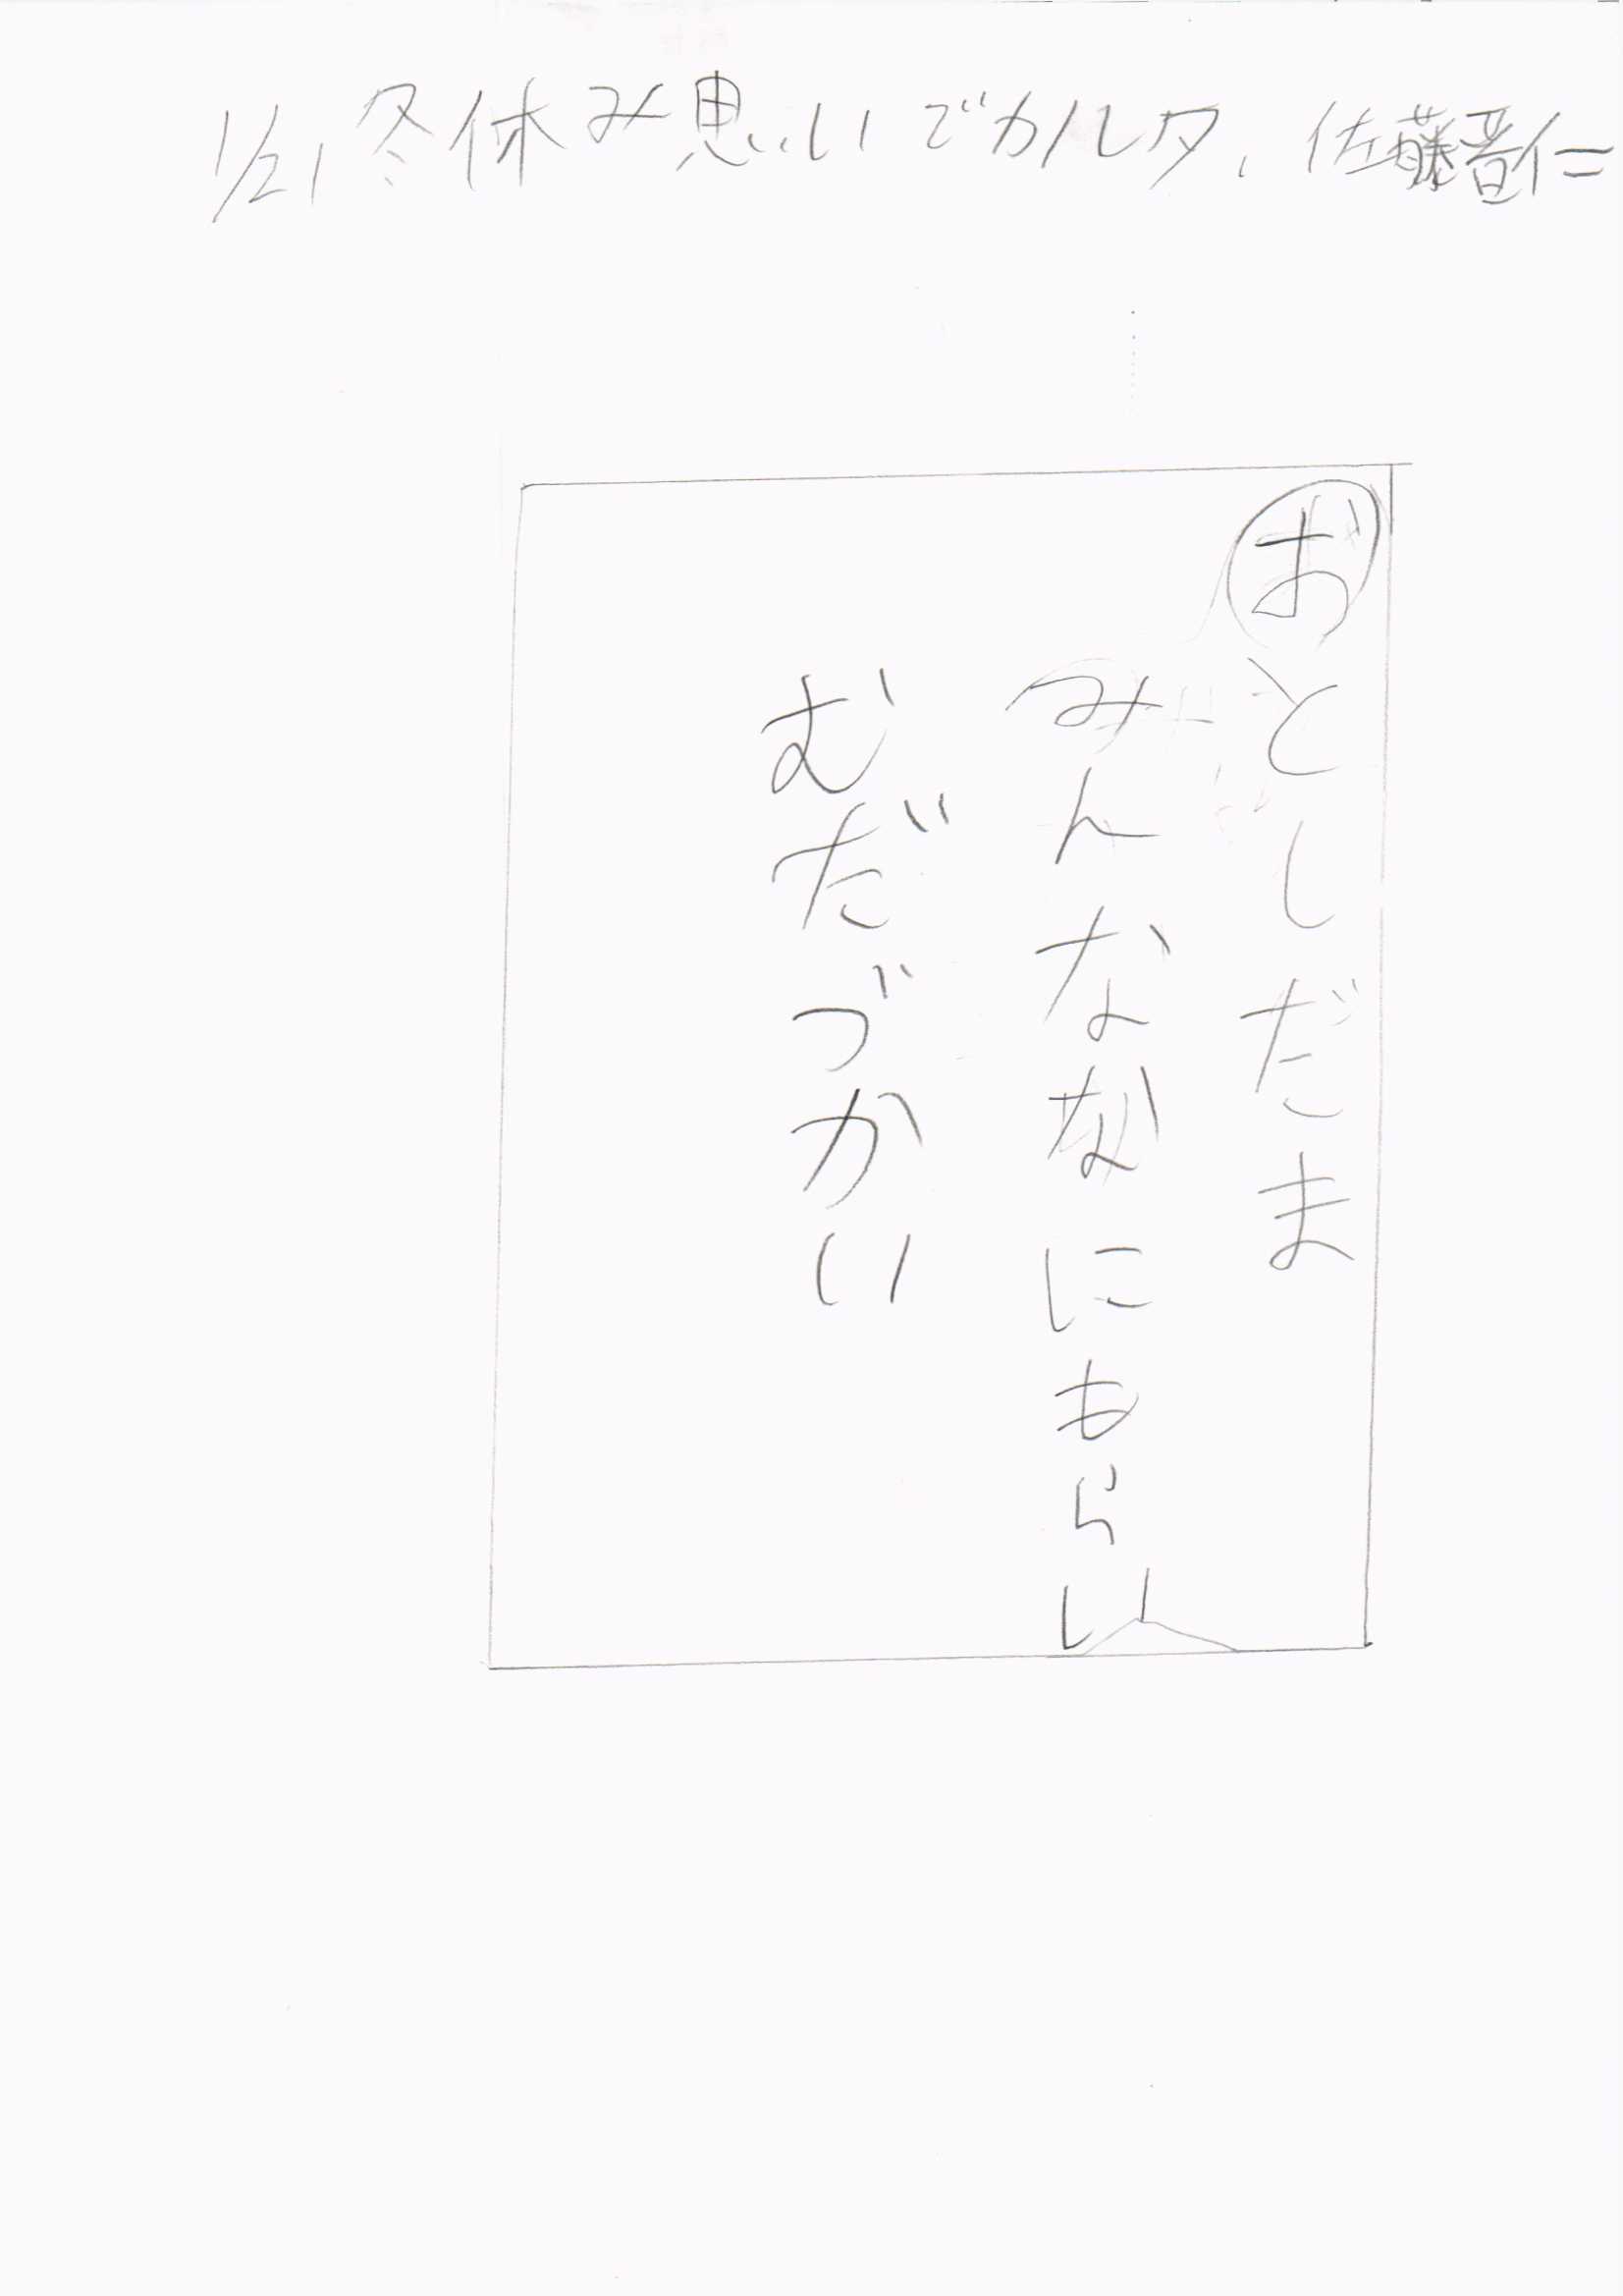 1/21 冬休み思いでカルタ、佐藤晋仁
おとしだま
みんななにもらい
むだづかい